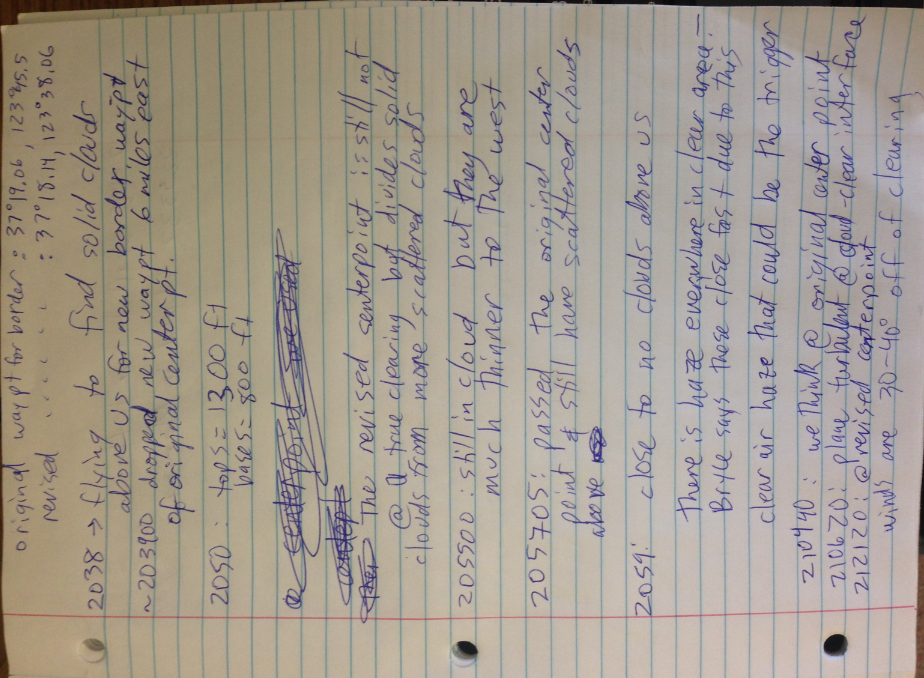 original waypt for border : 37°19.06, 123°45.5
revised " " " " : 37°18.14, 123°38.06
2038 → flying to find solid clouds
above us for new border waypt
~203900 dropped new waypt 6 miles east
of original center pt.
2050 : tops = 1300 ft
base = 800 ft
The revised centerpoint is still not
@ a true clearing but divides solid
clouds from more scattered clouds
205500 : still in cloud but they are
much thinner to the west
205705 : passed the original center
point & still have scattered clouds
above
2059 : close to no clouds above us
There is haze everywhere in clear area –
Bryce says these close fast due to this
clear air haze that could be the trigger
210440 : we think @ original center point
210620 : plane turbulent @ cloud-clear interface
212120 : @ revised centerpoint
winds are 30-40° off of clearing